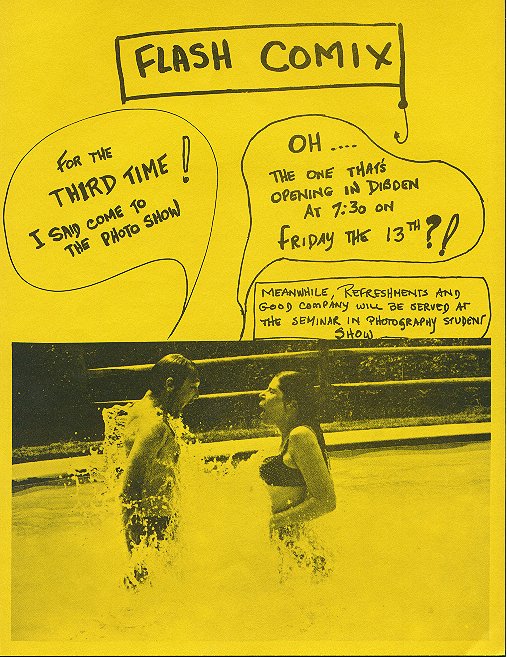 FLASH COMIX
FOR THE
THIRD TIME!
I SAID COME TO
THE PHOTO SHOW
OH ....
THE ONE THAT'S
OPENING IN DIBDEN
AT 7:30 ON
FRIDAY THE 13TH?!
MEANWHILE, REFRESHMENTS AND
GOOD COMPANY WILL BE SERVED AT
THE SEMINAR IN PHOTOGRAPHY STUDENT
SHOW